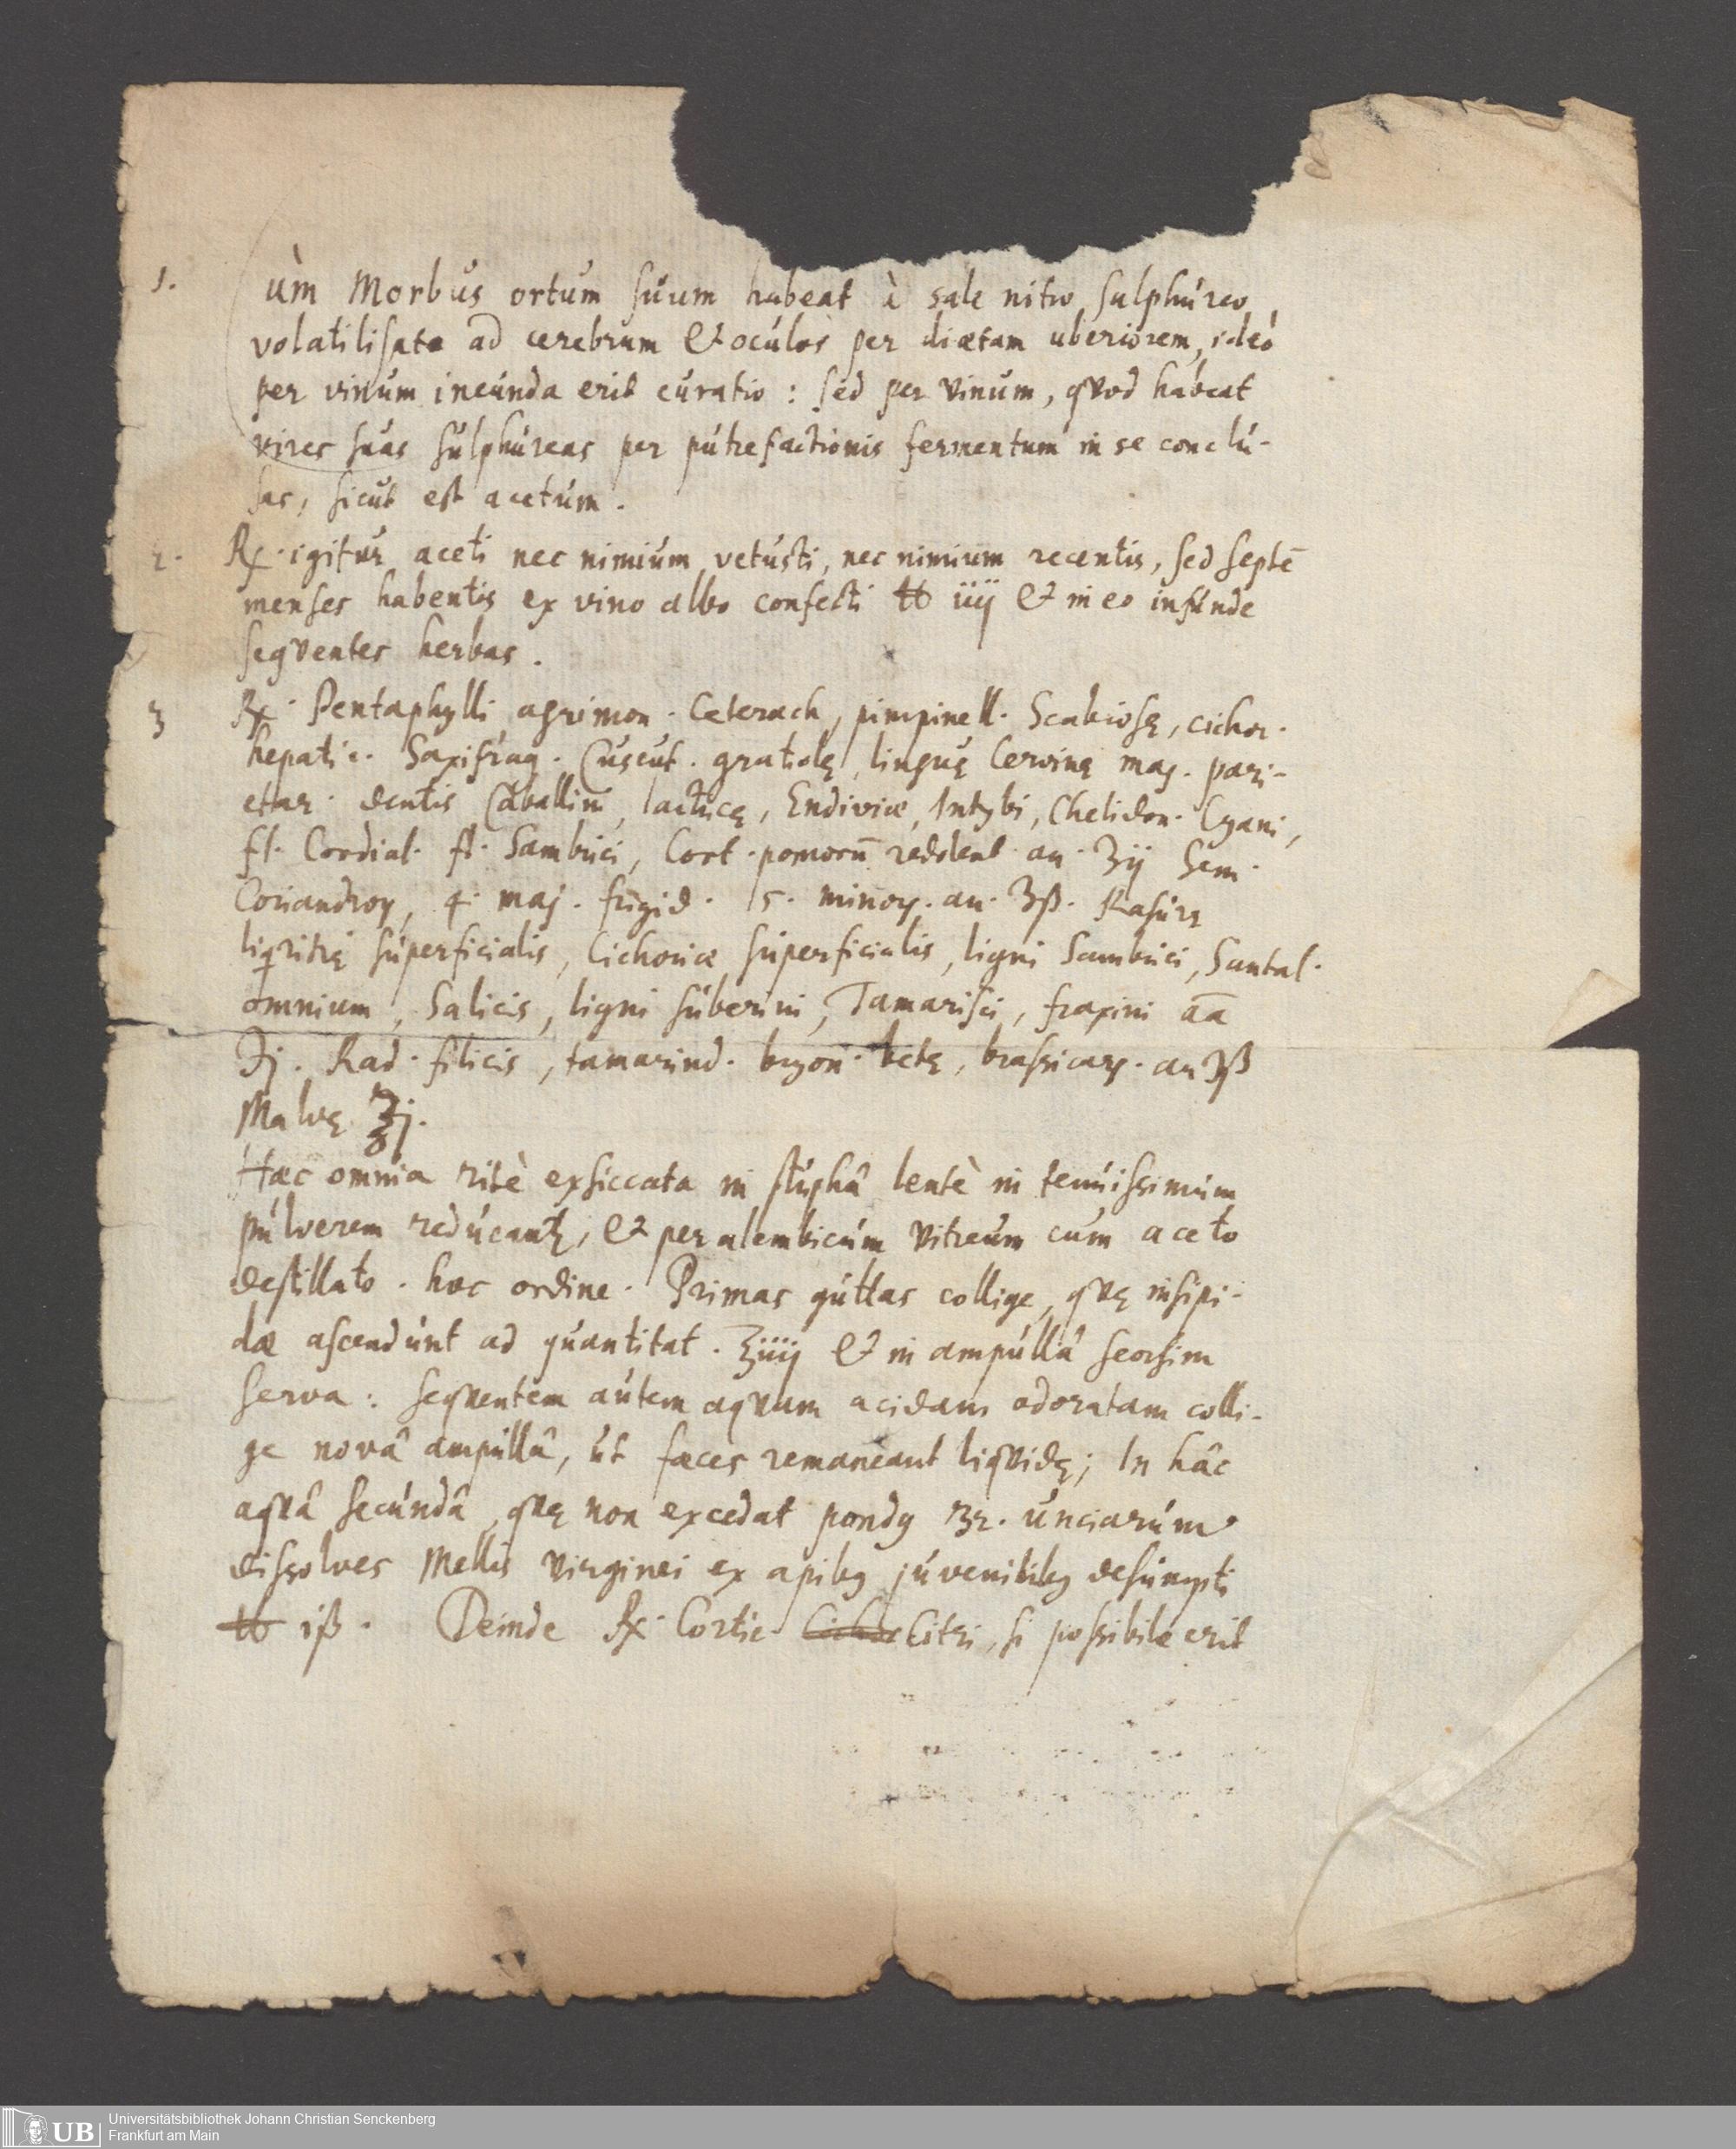 1. Cùm Morbus ortum suum habeat à sale nitro sulphureo,
volatilisato ad cerebrum & oculos per diætam uberiorem, ideò
per vinum ineunda erit curatio: sed per vinum, qvod habeat
vires suas sulphureas per putrefactionis fermentum in se conclu-
sas, sicut est acetum.
2. ℞. igitur aceti nec nimium vetusti, nec nimium recentis, sed septē
menses habentis ex vino albo confecti ℔ iiij & in eo infunde
seqventes herbas.
3 ℞. Pentaphylli agrimon. Ceterach, pimpinell. Scabiosę, cichor.
hepatic. Saxifrag. Cuscut. gratiolę, linguę Cervinę maj. pari-
etar. dentis Caballini, lactucę, Endiviæ, Intybi, Chelidon. Cyani,
fl. Cordial. fl. Sambuci, Cort. pomorū redolent. an. ʒij Sem.
Coriandroꝝ, 4. maj. frigid. 5. minoꝝ. an. ʒß. Rasurę
liqritię superficialis, Cichoriæ superficialis, ligni Sambuci, Santal.
omnium, Salicis, ligni suberini, Tamarisci, fraxini āā
ʒj. Rad. filicis, tamarind. bryon. betę, brassicaꝝ. an ʒß
Malvę ℥j.
Hæc omnia ritè exsiccata in stuphâ lentè in tenuissimum
pulverem reducantꝛ, & per alembicum vitreum cum aceto
destillato. hoc ordine. Primas guttas collige, qvę insipi-
dæ ascendunt ad quantitat. ℥iiij & in ampullâ seorsim
serva: seqventem autem aqvam acidam odoratam colli-
ge novâ ampullâ, ut fæces remaneant liqvidę; In hâc
aqvâ secundâ, qvę non excedat pondꝰ 32. unciarum
dissolves Mellis virginei ex apibꝰ juvenilibꝰ desumpti
℔ iß. Deinde ℞. Cortic. Cichor Citri, si possibile erit
Universitätsbibliothek Johann Christian Senckenberg
UB Frankfurt am Main